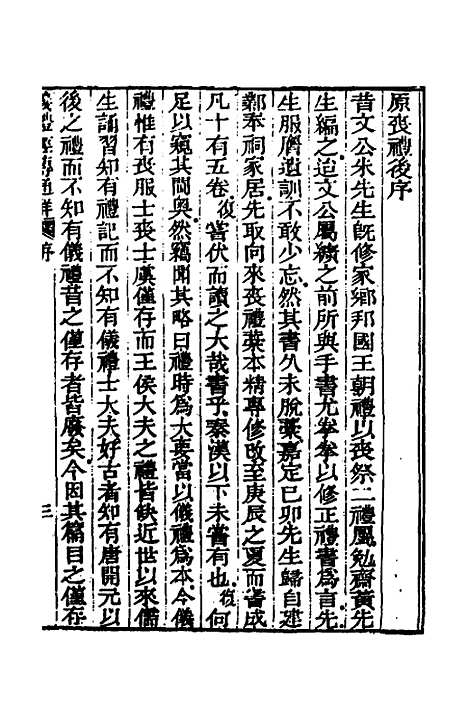 原喪禮後序
昔文公朱先生旣修家鄉邦國王朝禮以喪祭二禮屬勉齋黃先
生編之迨文公屬纊之前所與手書尤拳拳以修正禮書爲言先
生服膺遺訓不敢少忘然其書久未脫藁嘉定己卯先生歸自建
鄴奉祠家居先取向來喪禮藁本精專修改至庚辰之夏而書成
凡十有五卷復嘗伏而讀之大哉書乎秦漢以下未嘗有也復何
足以窺其閫奧然竊聞其略曰禮時爲大要當以儀禮爲本今儀
禮惟有喪服士喪士虞僅存而王侯大夫之禮皆缺近世以來儒
生誦習知有禮記而不知有儀禮士大夫好古者知有唐開元以
後之禮而不知有儀禮昔之僅存者皆廢矣今因其篇目之僅存
儀禮經傳通解續序
三